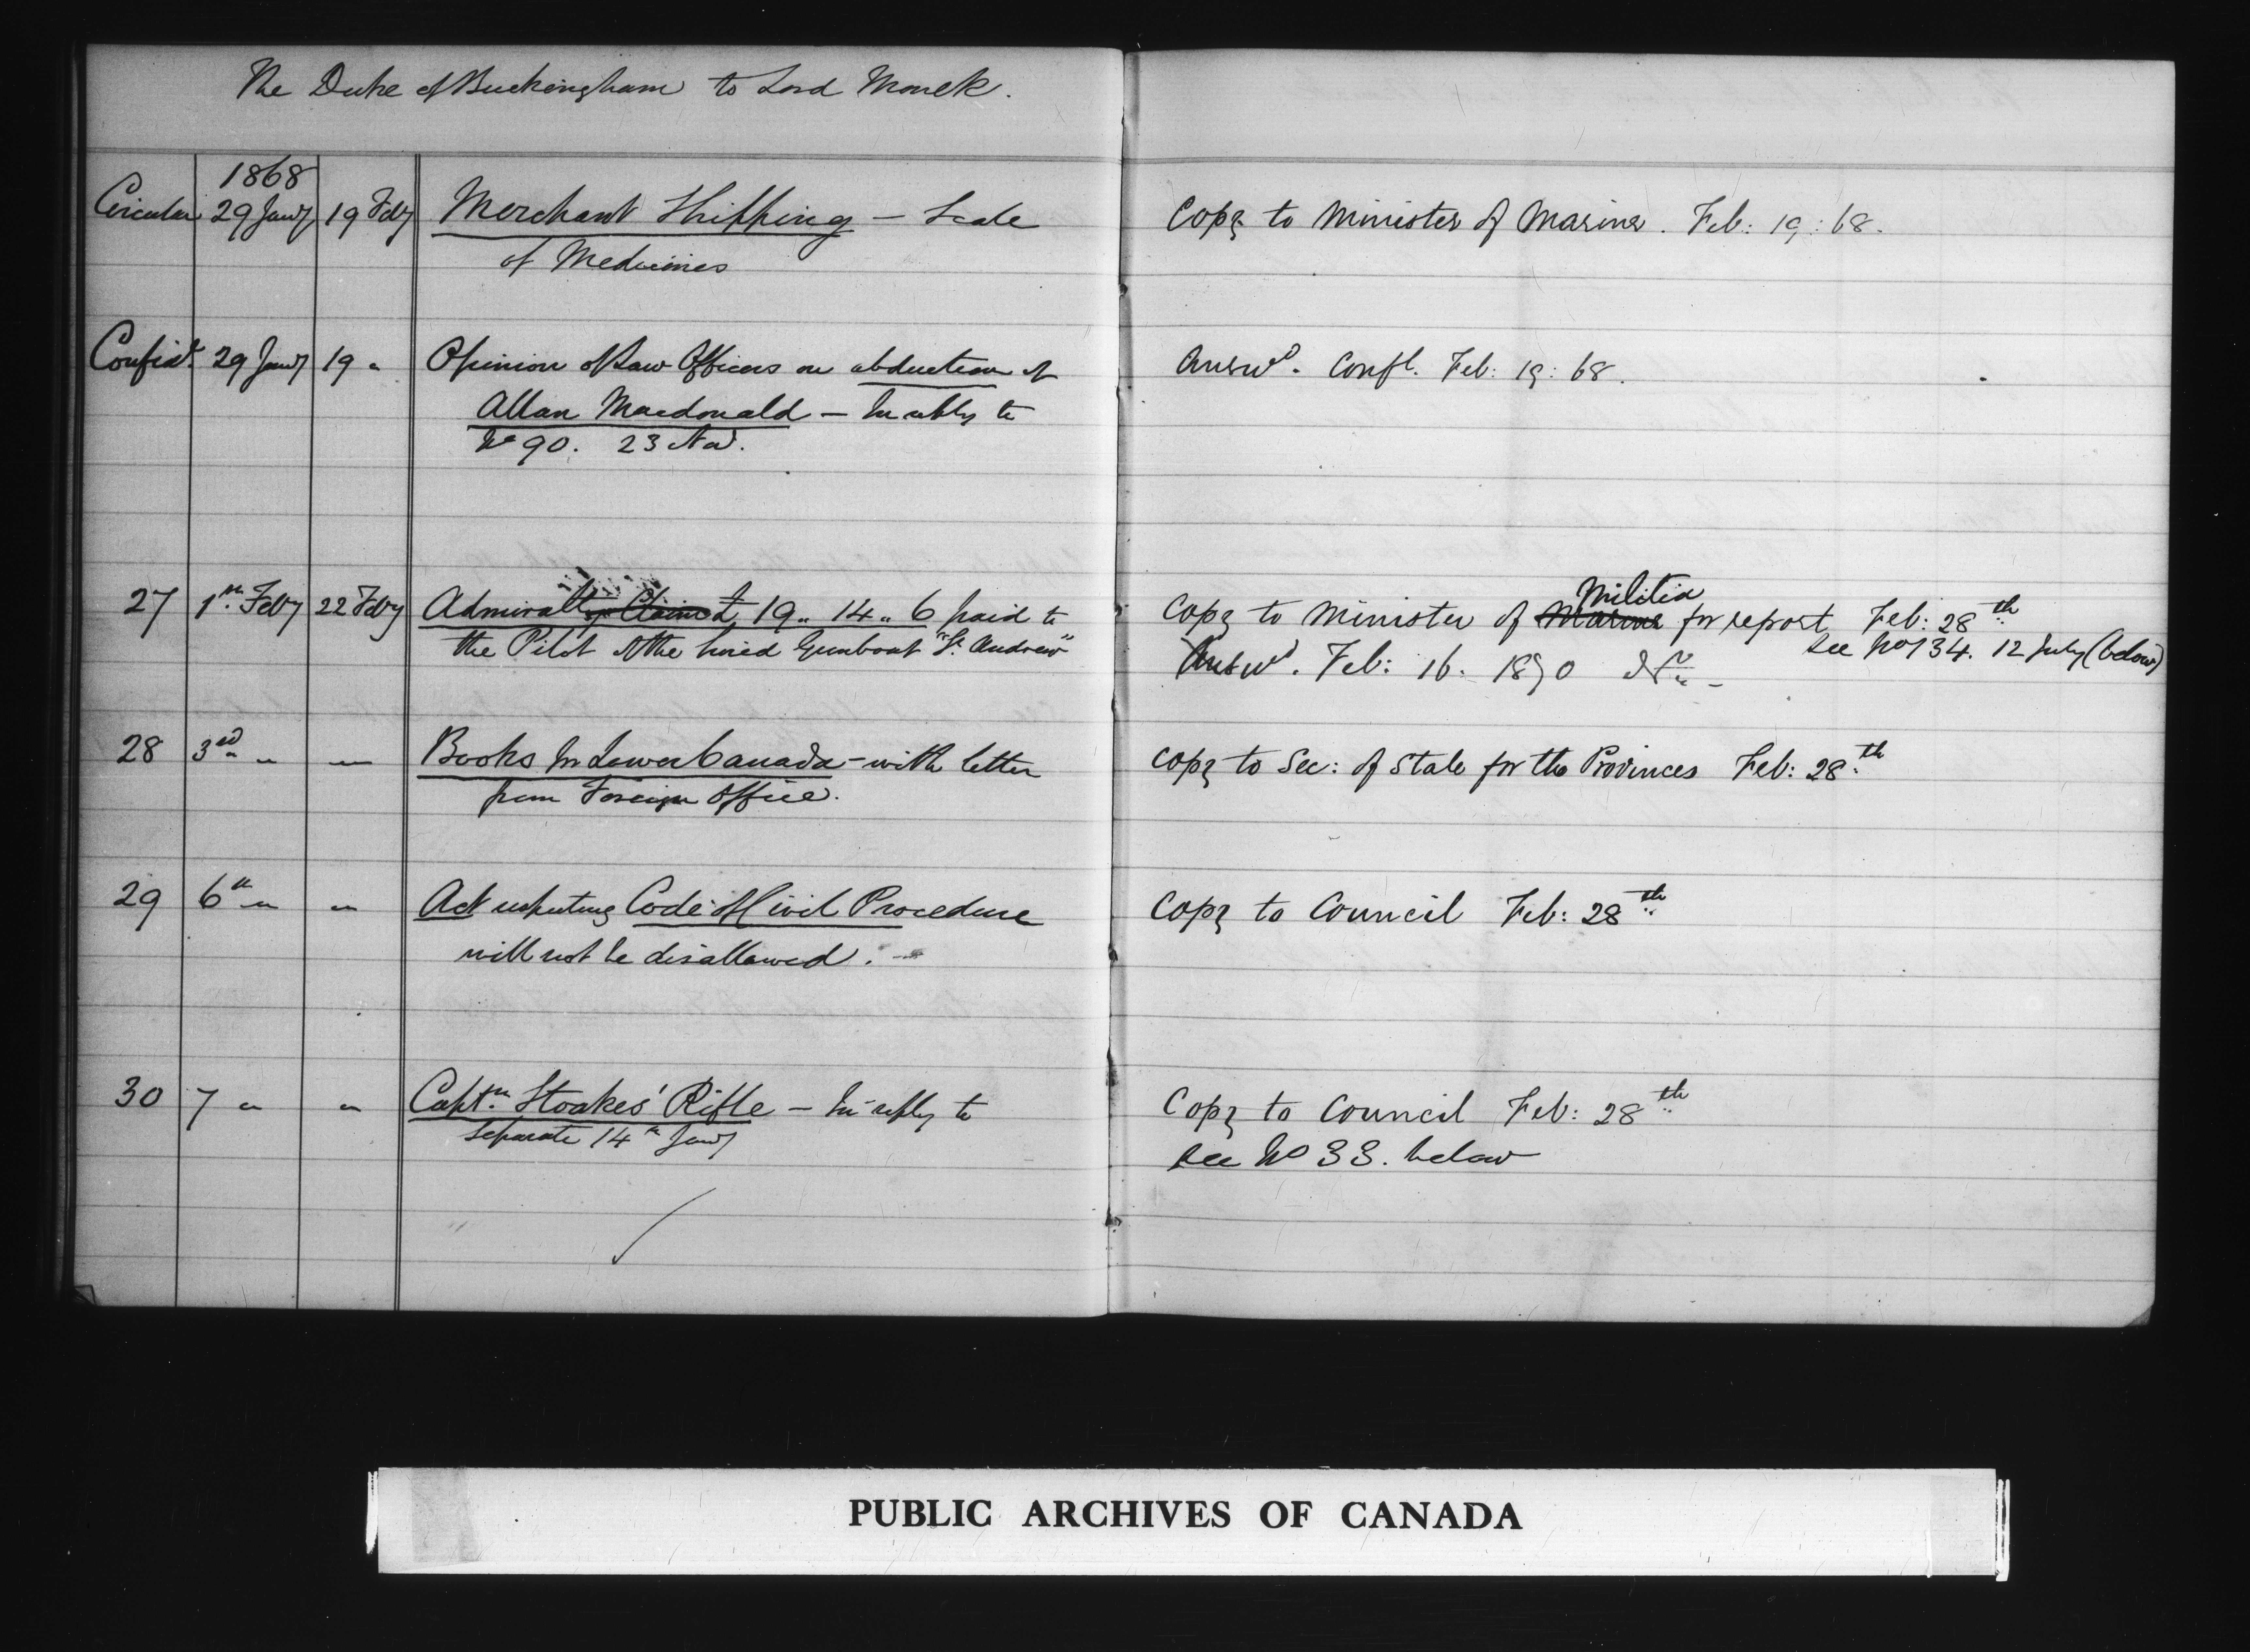 The Duke of Buckingham to Lord Monck.
1868
Circular 29 Jany 19 Feby Merchant Shipping – Scale
of Medicines
Copy to Minister of Marine. Feb: 19: 68.
Confidl. 29 Jany 19 " Opinion of Law Officers on abduction of
Allan Macdonald – In reply to
No 90. 23 Nov.
Answd. Confl. Feb: 19: 68.
27 1st Feby 22 Feby Admiralty Claim £19.. 14.. 6 paid to
the Pilot of the hired Gunboat "St. Andrew"
Militia
Copy to Minister of Marine for report Feb: 28th
see No 134. 12 July (below)
Answd. Feb: 16. 1870
28 3rd " " — Books in Lower Canada – with letter
from Foreign Office.
Copy to Sec: of State for the Provinces Feb: 28th
29 6th " " Act respecting Code of Civil Procedure
will not be disallowed. –
Copy to Council Feb: 28th
30 7 " " Captn. Stoakes' Rifle – In reply to
Separate 14th Jany
Copy to Council Feb: 28th
see No 33. below
PUBLIC ARCHIVES OF CANADA